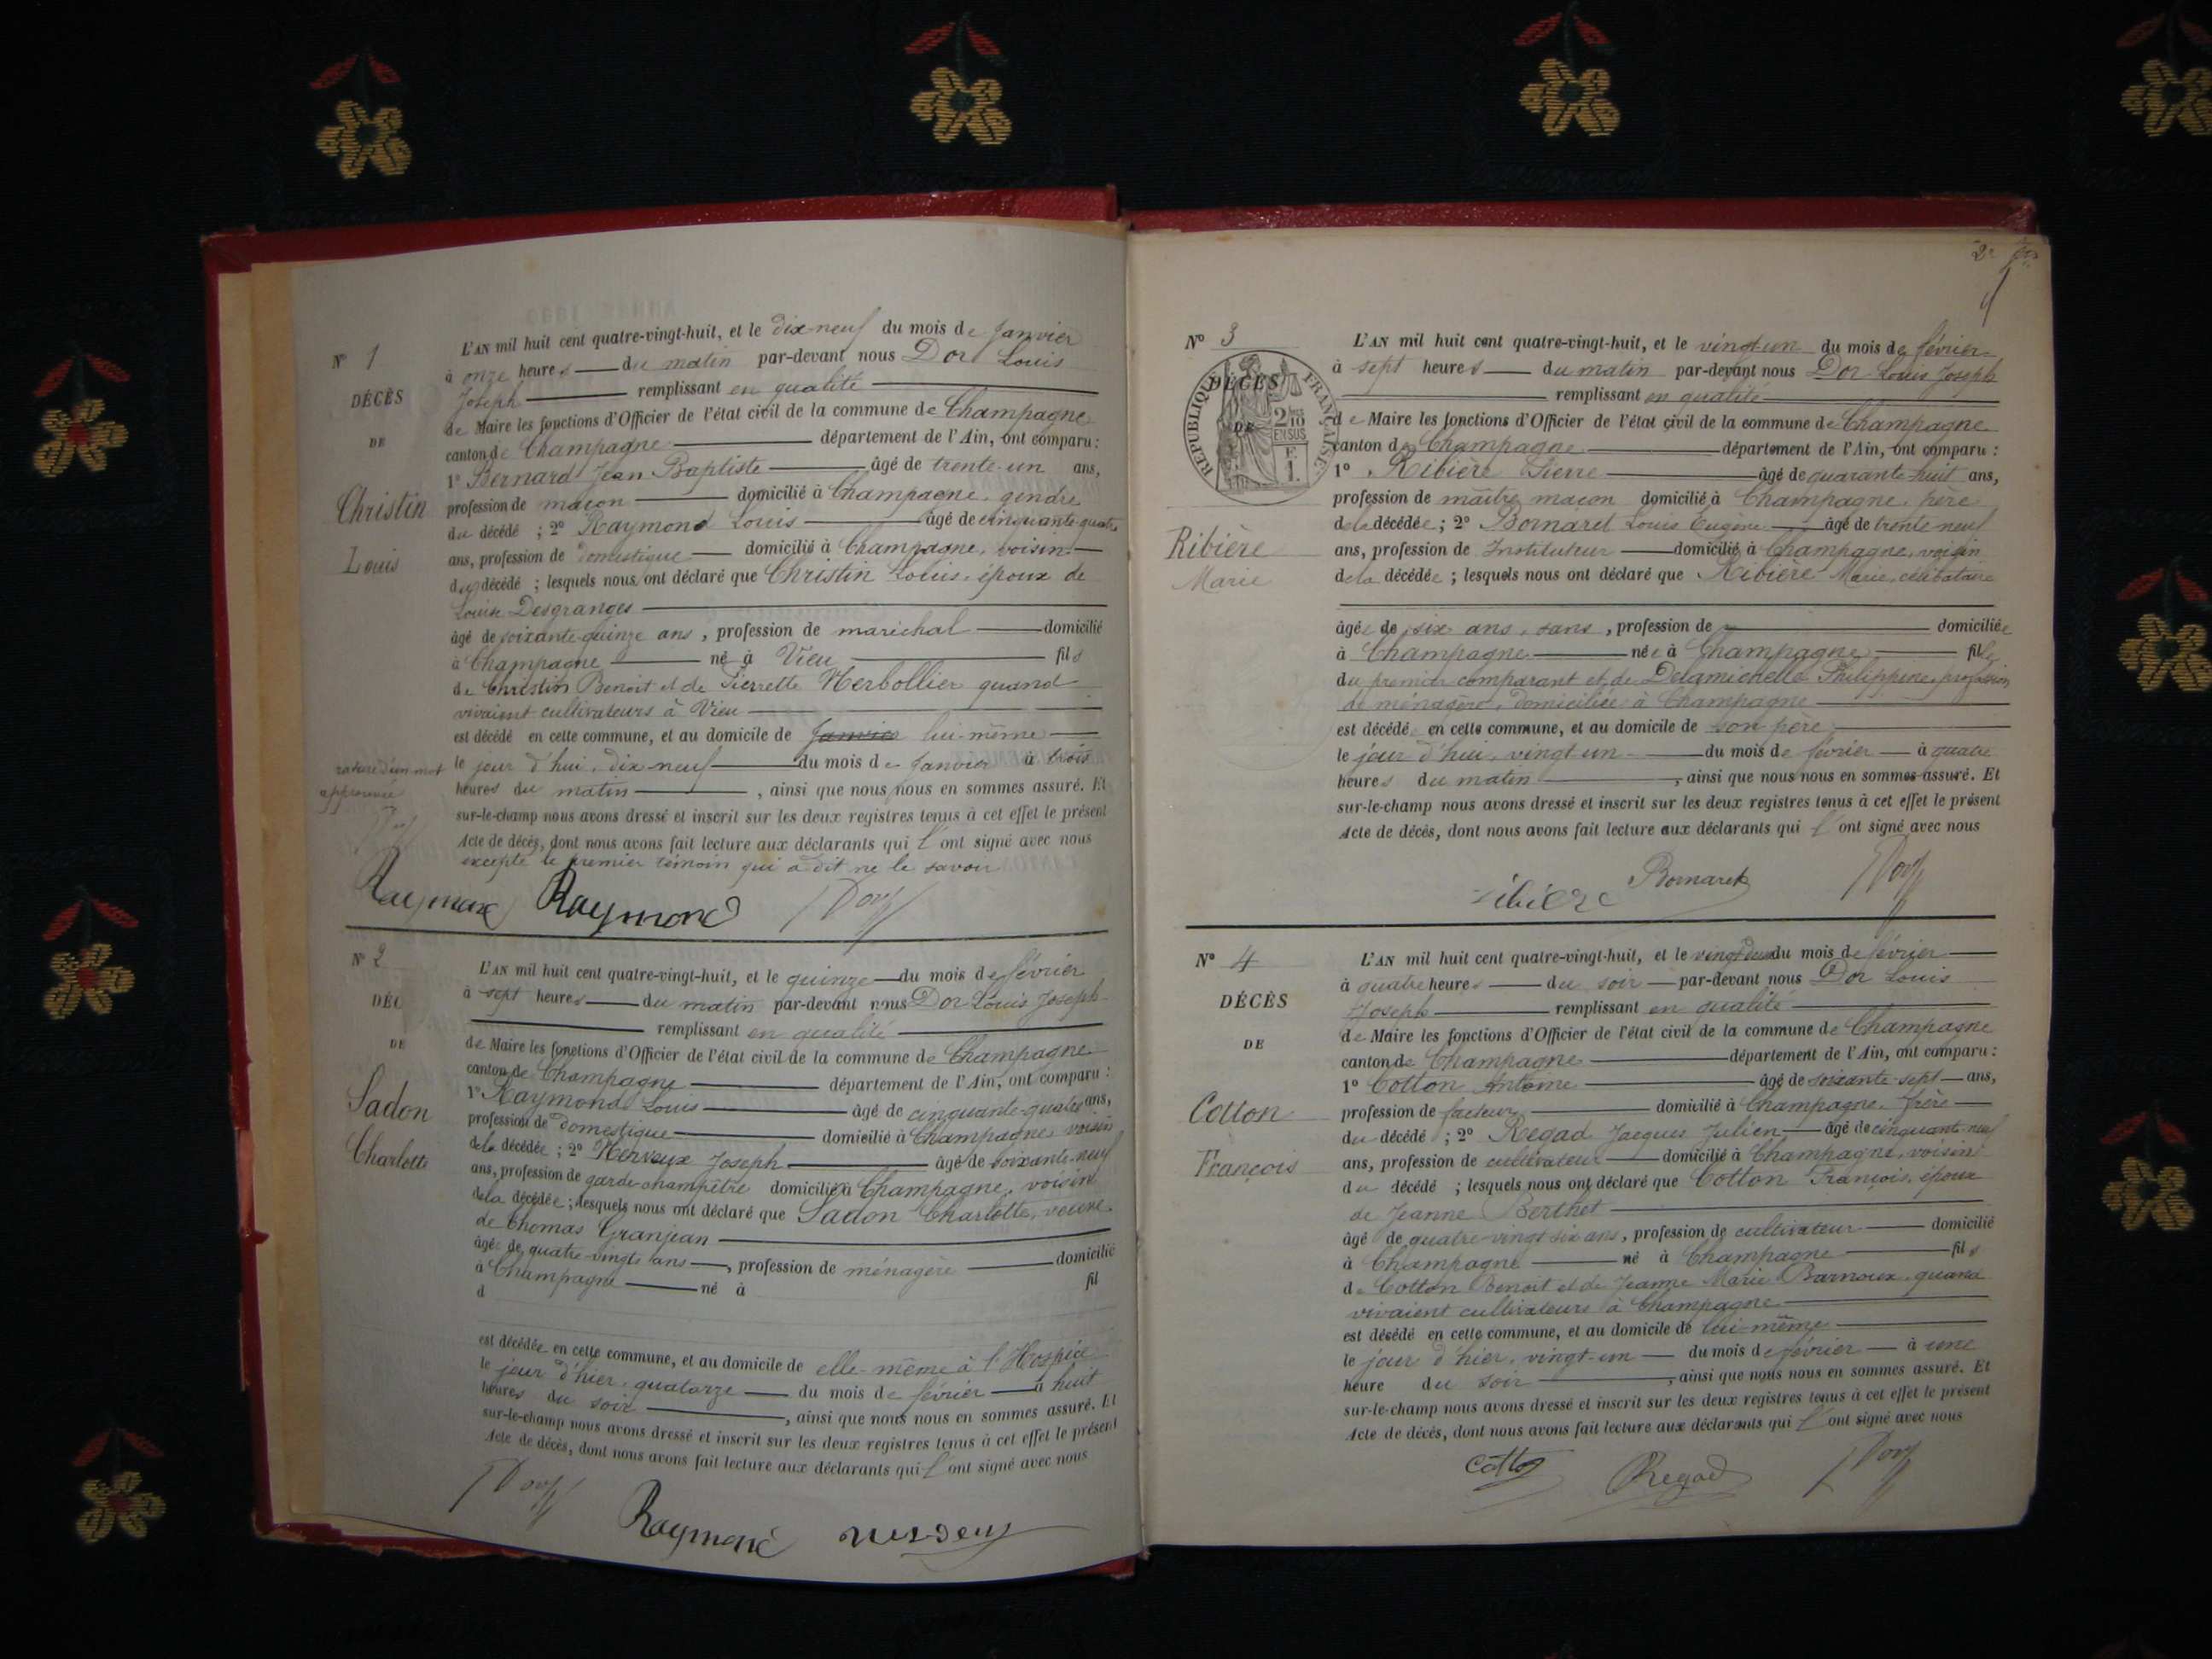 N° 1
DÉCÈS
DE
Christin
Louis
L'AN mil huit cent quatre-vingt-huit, et le dix-neuf du mois de Janvier
à onze heures du matin par-devant nous Dor Louis
Joseph remplissant en qualité
de Maire les fonctions d'Officier de l'état civil de la commune de Champagne
canton de Champagne département de l'Ain, ont comparu :
1° Bernard Jean Baptiste âgé de trente-un ans,
profession de maçon domicilié à Champagne, gendre
du décédé ; 2° Raymond Louis âgé de cinquante-quatre
ans, profession de domestique domicilié à Champagne, voisin
du décédé ; lesquels nous ont déclaré que Christin Louis, époux de
Louise Desgranges
âgé de soixante-quinze ans, profession de maréchal domicilié
à Champagne né à Vieu fils
de Christin Benoit et de Pierrette Herbollier quand
vivaient cultivateurs à Vieu
est décédé en cette commune, et au domicile de Janvier lui-même
le jour d'hui, dix-neuf du mois de Janvier à trois
heures du matin, ainsi que nous nous en sommes assuré. Et
sur-le-champ nous avons dressé et inscrit sur les deux registres tenus à cet effet le présent
Acte de décès, dont nous avons fait lecture aux déclarants qui l'ont signé avec nous
excepté le premier témoin qui a dit ne le savoir
rature d'un mot
approuvée
Raymond Raymond Dor
N° 2
DÉC
DE
Sadon
Charlotte
L'AN mil huit cent quatre-vingt-huit, et le quinze du mois de février
à sept heures du matin par-devant nous Dor Louis Joseph
remplissant en qualité
de Maire les fonctions d'Officier de l'état civil de la commune de Champagne
canton de Champagne département de l'Ain, ont comparu :
1° Raymond Louis âgé de cinquante-quatre ans,
profession de domestique domicilié à Champagne voisin
de la décédée ; 2° Nerveux Joseph âgé de soixante-neuf
ans, profession de garde-champêtre domicilié à Champagne, voisin
de la décédée ; lesquels nous ont déclaré que Sadon Charlotte, veuve
de Thomas Granjean
âgée de quatre-vingts ans, profession de ménagère domicilié
à Champagne né à fil
d
est décédée en cette commune, et au domicile de elle-même à l'Hospice
le jour d'hier, quatorze du mois de février à huit
heures du soir, ainsi que nous nous en sommes assuré. Et
sur-le-champ nous avons dressé et inscrit sur les deux registres tenus à cet effet le présent
Acte de décès, dont nous avons fait lecture aux déclarants qui l'ont signé avec nous
Dor
Raymond
N° 3
DÉCÈS
DE
RÉPUBLIQUE FRANÇAISE
2/10
EN SUS
F.
1.
Ribière
Marie
L'AN mil huit cent quatre-vingt-huit, et le vingt-un du mois de février
à sept heures du matin par-devant nous Dor Louis Joseph
remplissant en qualité
de Maire les fonctions d'Officier de l'état civil de la commune de Champagne
canton de Champagne département de l'Ain, ont comparu :
1° Ribière Pierre âgé de quarante-huit ans,
profession de maître maçon domicilié à Champagne, père
de la décédée ; 2° Bornaret Louis Eugène âgé de trente neuf
ans, profession de Instituteur domicilié à Champagne, voisin
de la décédée ; lesquels nous ont déclaré que Ribière Marie, célibataire
âgée de six ans, sans, profession de domiciliée
à Champagne née à Champagne fille
du premier comparant et de Delamichelle Philippine, profession
de ménagère, domiciliée à Champagne
est décédé en cette commune, et au domicile de son père
le jour d'hui, vingt-un du mois de février à quatre
heures du matin, ainsi que nous nous en sommes assuré. Et
sur-le-champ nous avons dressé et inscrit sur les deux registres tenus à cet effet le présent
Acte de décès, dont nous avons fait lecture aux déclarants qui l'ont signé avec nous
Ribière Bornaret Dor
N° 4
DÉCÈS
DE
Cotton
François
L'AN mil huit cent quatre-vingt-huit, et le vingt-deux du mois de février
à quatre heures du soir par-devant nous Dor Louis
Joseph remplissant en qualité
de Maire les fonctions d'Officier de l'état civil de la commune de Champagne
canton de Champagne département de l'Ain, ont comparu :
1° Cotton Antome âgé de soixante-sept ans,
profession de facteur domicilié à Champagne, frère
du décédé ; 2° Regad Jacques Julien âgé de cinquante-neuf
ans, profession de cultivateur domicilié à Champagne, voisin
du décédé ; lesquels nous ont déclaré que Cotton François, époux
de Jeanne Berthet
âgé de quatre-vingt six ans, profession de cultivateur domicilié
à Champagne né à Champagne fils
de Cotton Benoit et de Jeanne Marie Barnoux, quand
vivaient cultivateurs à Champagne
est décédé en cette commune, et au domicile de lui-même
le jour d'hier, vingt-un du mois de février à une
heure du soir, ainsi que nous nous en sommes assuré. Et
sur-le-champ nous avons dressé et inscrit sur les deux registres tenus à cet effet le présent
Acte de décès, dont nous avons fait lecture aux déclarants qui l'ont signé avec nous
Cotton Regad Dor